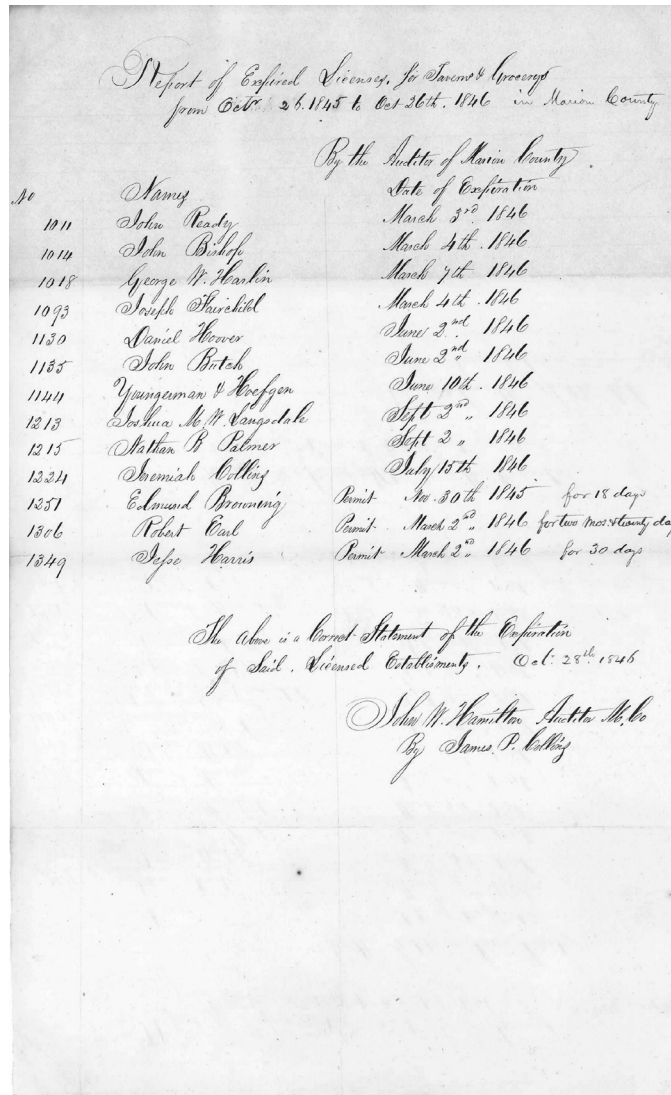 Report of Expired Licenses, for Taverns & Grocerys
from Octr 26. 1845 to Oct 26th. 1846 in Marion County
By the Auditor of Marion County.
No Names Date of Expiration
1011 John Ready March 3rd. 1846
1014 John Bishop March 4th. 1846
1018 George W. Harlin March 7th 1846
1093 Joseph Fairchild March 4th. 1846
1130 Daniel Hoover June 2nd 1846
1135 John Butch June 2nd „ 1846
1144 Youngerman & Hoefgen June 10th. 1846
1213 Joshua M. W. Langsdale Sept 2nd „ 1846
1215 Nathan B Palmer Sept 2 „ 1846
1224 Jeremiah Collins July 15th 1846
1251 Edmund Browning Permit Nov. 30th 1845 for 18 days
1306 Robert Earl Permit. March 2nd „ 1846 for two mos. & twenty da
1349 Jesse Harris Permit March 2nd „ 1846 for 30 days
The Above is a Correct Statement of the Expiration
of Said. Licensed Establisments. Oct. 28th. 1846
John W. Hamilton Auditor M. Co
By James. P. Collins